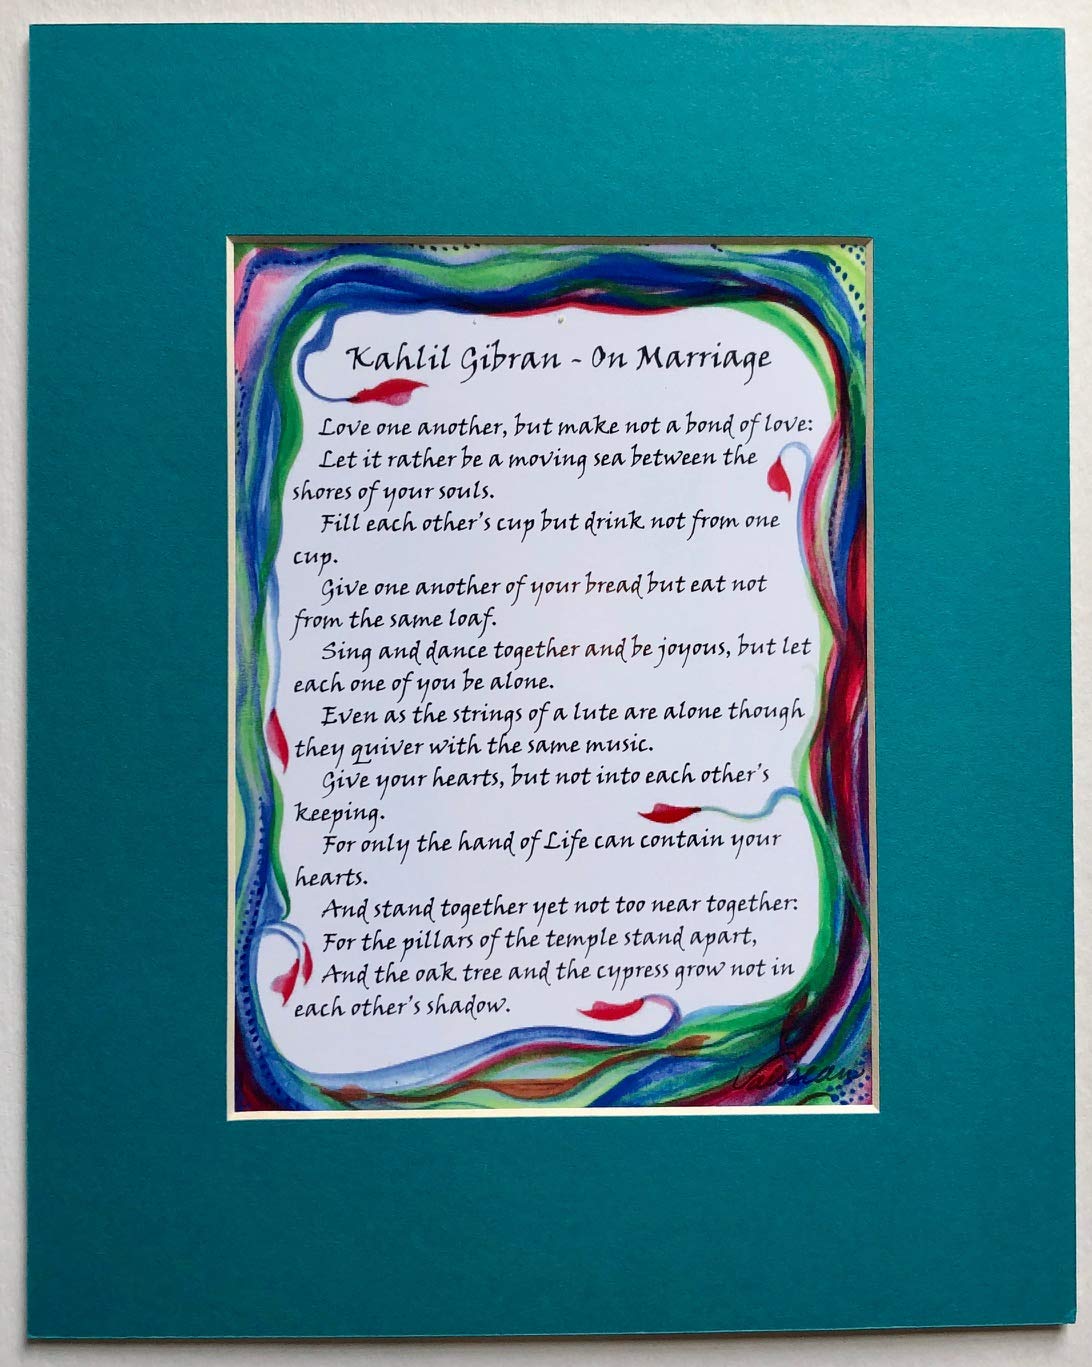 Kahlil Gibran - On Marriage
Love one another, but make not a bond of love:
Let it rather be a moving sea between the
shores of your souls.
Fill each other's cup but drink not from one
cup.
Give one another of your bread but eat not
from the same loaf.
Sing and dance together and be joyous, but let
each one of you be alone.
Even as the strings of a lute are alone though
they quiver with the same music.
Give your hearts, but not into each other's
keeping.
For only the hand of Life can contain your
hearts.
And stand together yet not too near together:
For the pillars of the temple stand apart,
And the oak tree and the cypress grow not in
each other's shadow.